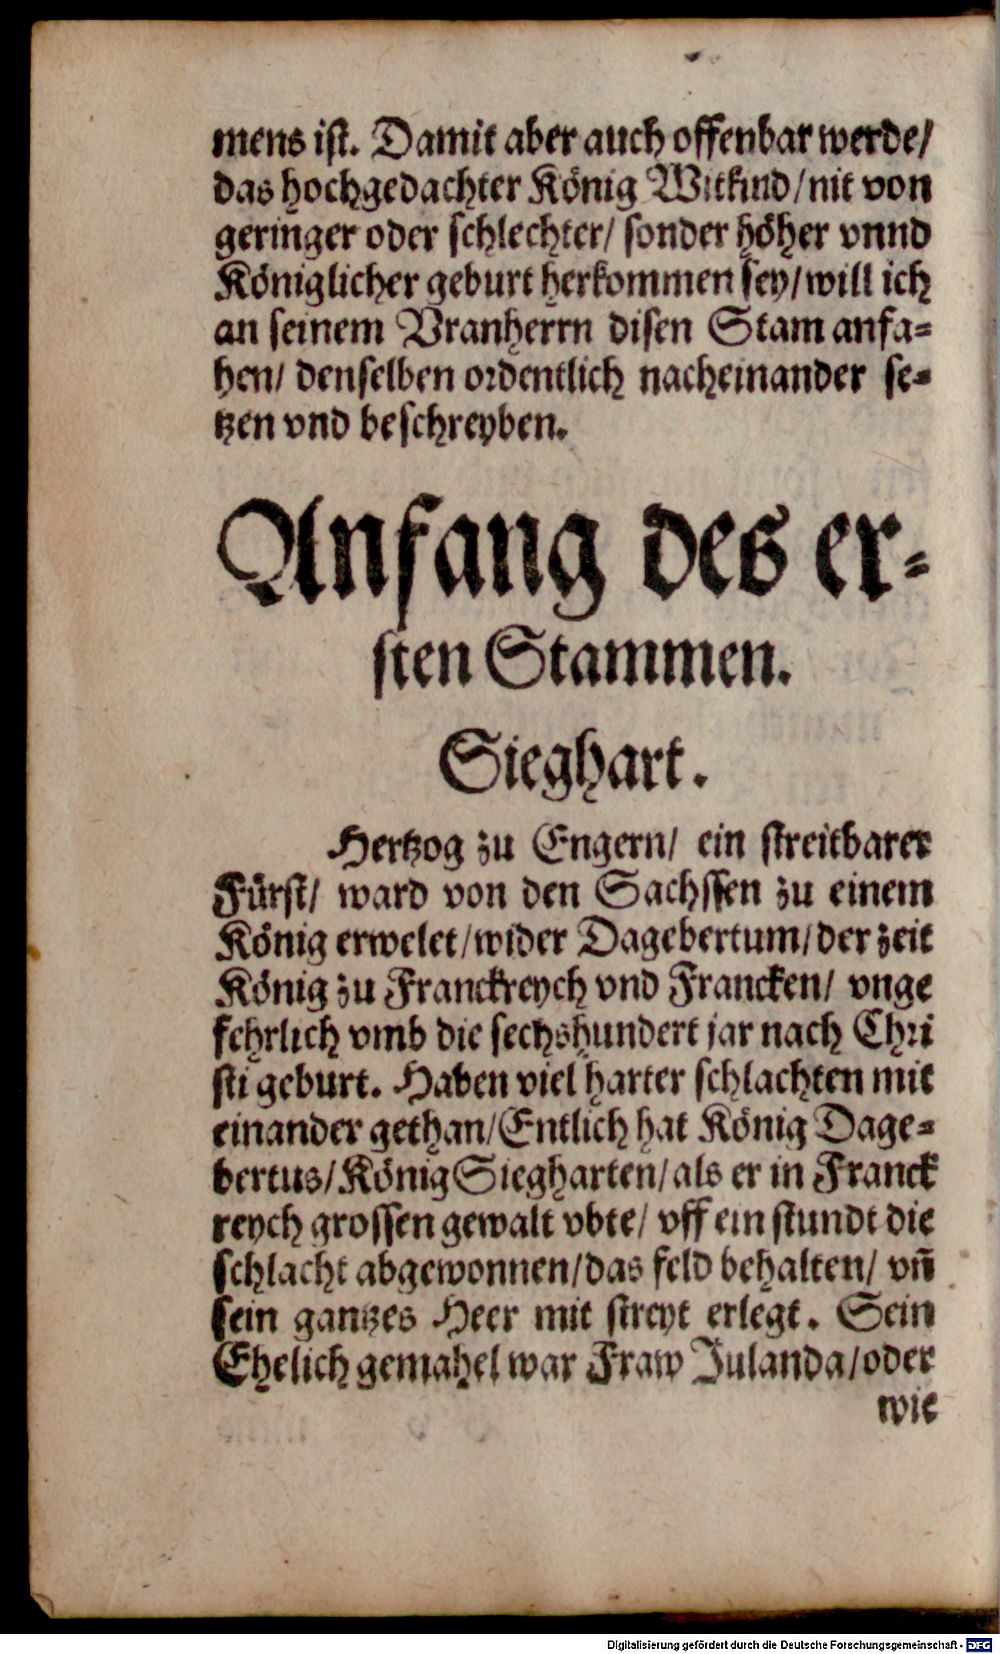 mens ist. Damit aber auch offenbar werde/
das hochgedachter König Witkind/nit von
geringer oder schlechter/ sonder höher vnnd
Königlicher geburt herkommen sey/will ich
an seinem Vranherrn disen Stam anfa=
hen/ denselben ordentlich nacheinander se=
tzen vnd beschreyben.
Anfang des er=
sten Stammen.
Sieghart.
Hertzog zu Engern/ ein streitbarer
Fürst/ ward von den Sachssen zu einem
König erwelet/wider Dagebertum/der zeit
König zu Franckreych vnd Francken/ vnge
fehrlich vmb die sechshundert jar nach Chri
sti geburt. Haben viel harter schlachten mit
einander gethan/Entlich hat König Dage=
bertus/König Siegharten/als er in Franck
reych grossen gewalt vbte/ vff ein stundt die
schlacht abgewonnen/das feld behalten/ vñ
sein gantzes Heer mit streyt erlegt. Sein
Ehelich gemahel war Fraw Julanda/oder
wie
Digitalisierung gefördert durch die Deutsche Forschungsgemeinschaft - DFG